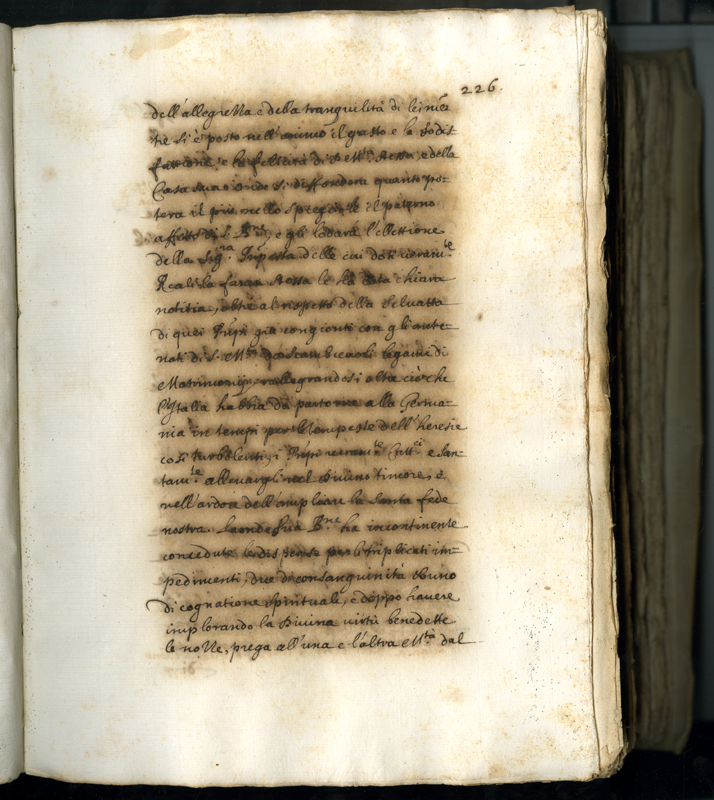 226.
dell'allegrezza e della tranquilità di lei mẽ
tre si è posto nell'animo il gusto e la sodis
fattione, e la felicità di S. M.tà stessa, e della
Casa sua onde si diffondera quanto po-
tera il più nello spiegar le il paterno
affetto di S. B.ne, e gli lodarà l'elettione
della Sig.ra Prĩpessa delle cui doti veram.te
Reali la fama stessa le ha data chiara
notitia, oltre al rispetto della
di quei Prĩpi già congionti con gli ante-
nati di S. M.tà da scambievoli legami di
Matrimonij, rallegrandosi oltra ciò che
l'Italia habbia da partorire alla Germa-
nia in tempi per le tempeste dell'heresie
così turbolenti, i Prĩpi veram.te Catt.ci e San-
tam.te allevargli nel Divino timore, e
nell'ardore dell'ampliare la Santa fede
nostra. Laonde Sua B.ne ha incontinente
conceduta la dispensa per li triplicati im-
pedimenti, due di consanguinità et uno
di cognatione Spirituale, e doppo havere
implorando la Divina virtù benedette
le nozze, prega all'una e l'altra M.tà dal